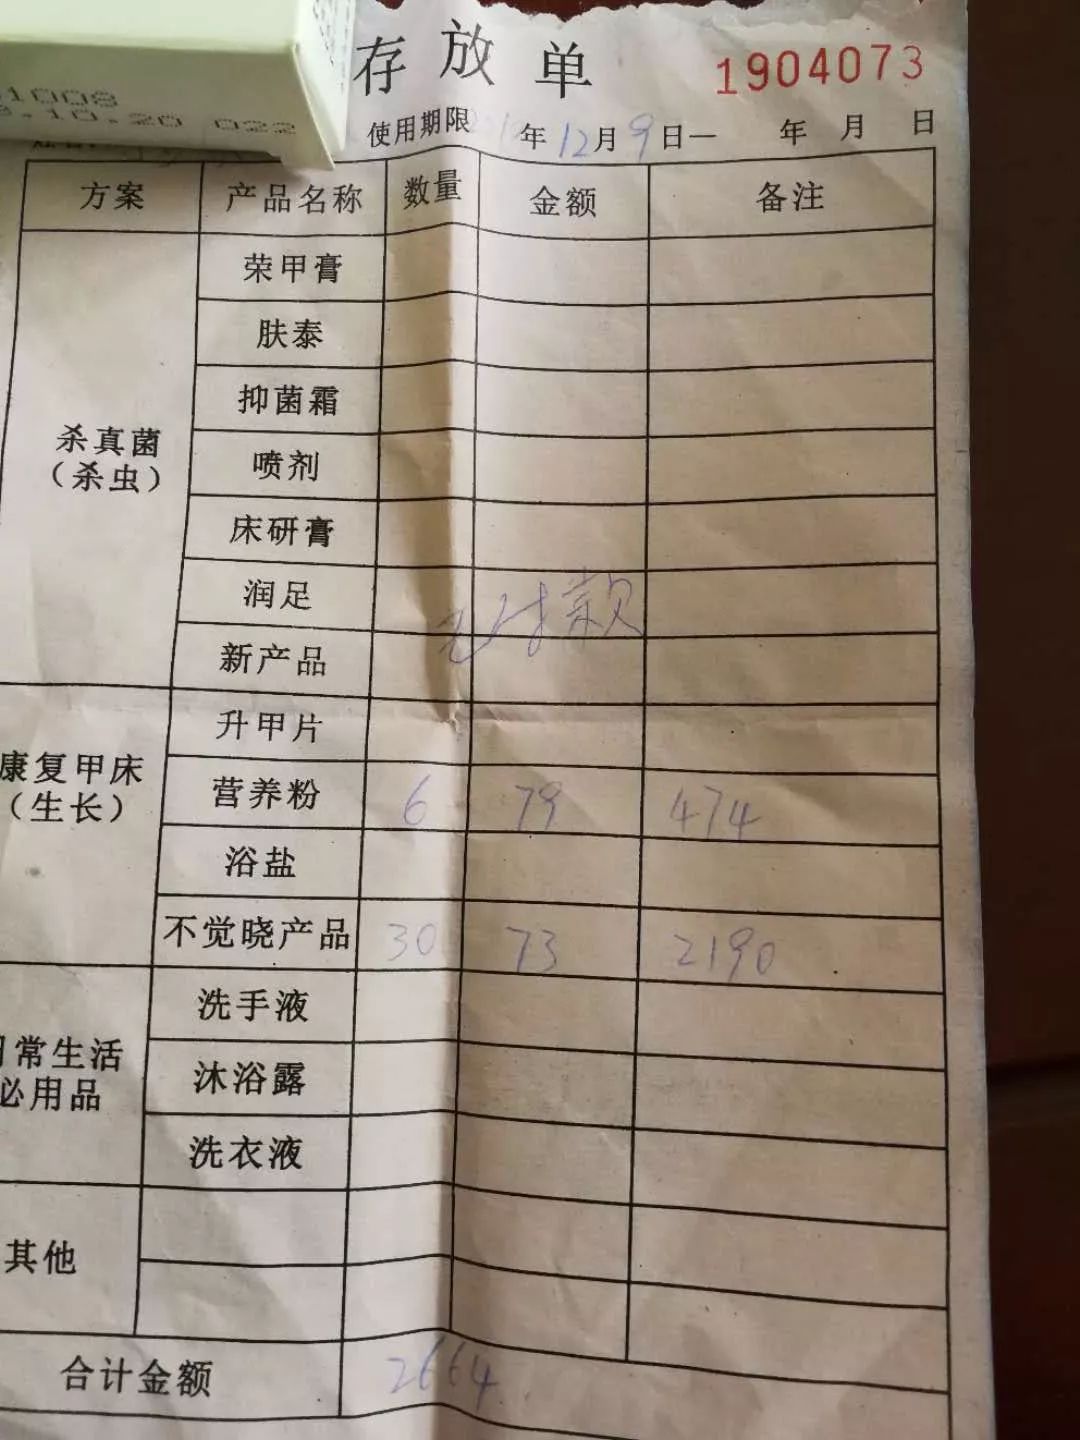 存放单 1904073
1008
.10.20 022
使用期限 年12月9日— 年 月 日
方案 产品名称 数量 金额 备注
荣甲膏
肤泰
抑菌霜
杀真菌
（杀虫）
喷剂
床研膏
润足
付款
新产品
升甲片
康复甲床
（生长）
营养粉 6 79 474
浴盐
不觉晓产品 30 73 2190
洗手液
常生活
必用品
沐浴露
洗衣液
其他
合计金额 2664